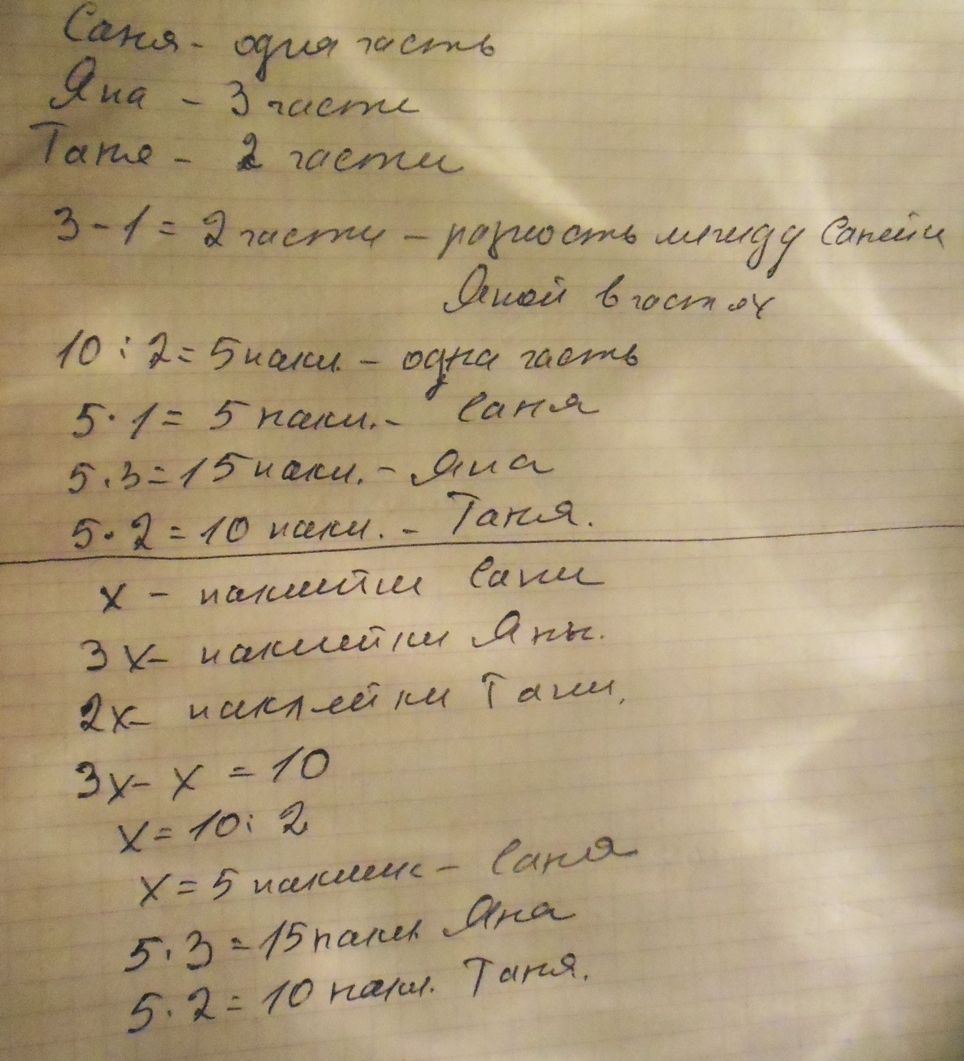 Саня - одна часть
Яна - 3 части
Таня - 2 части
3 - 1 = 2 части - разность между Саней и
Яной в частях
10 : 2 = 5 накл. - одна часть
5 · 1 = 5 накл. - Саня
5 · 3 = 15 накл. - Яна
5 · 2 = 10 накл. - Таня.
х - наклейки Сани
3х - наклейки Яны.
2х - наклейки Тани.
3х - х = 10
х = 10 : 2
х = 5 наклеек - Саня
5 · 3 = 15 накл. Яна
5 · 2 = 10 накл. Таня.